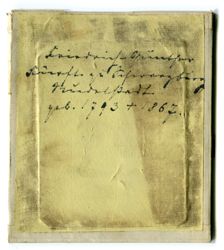 Friedrich Günther
Fürst zu Schwarzburg
Rudolstadt
geb. 1793 + 1867.